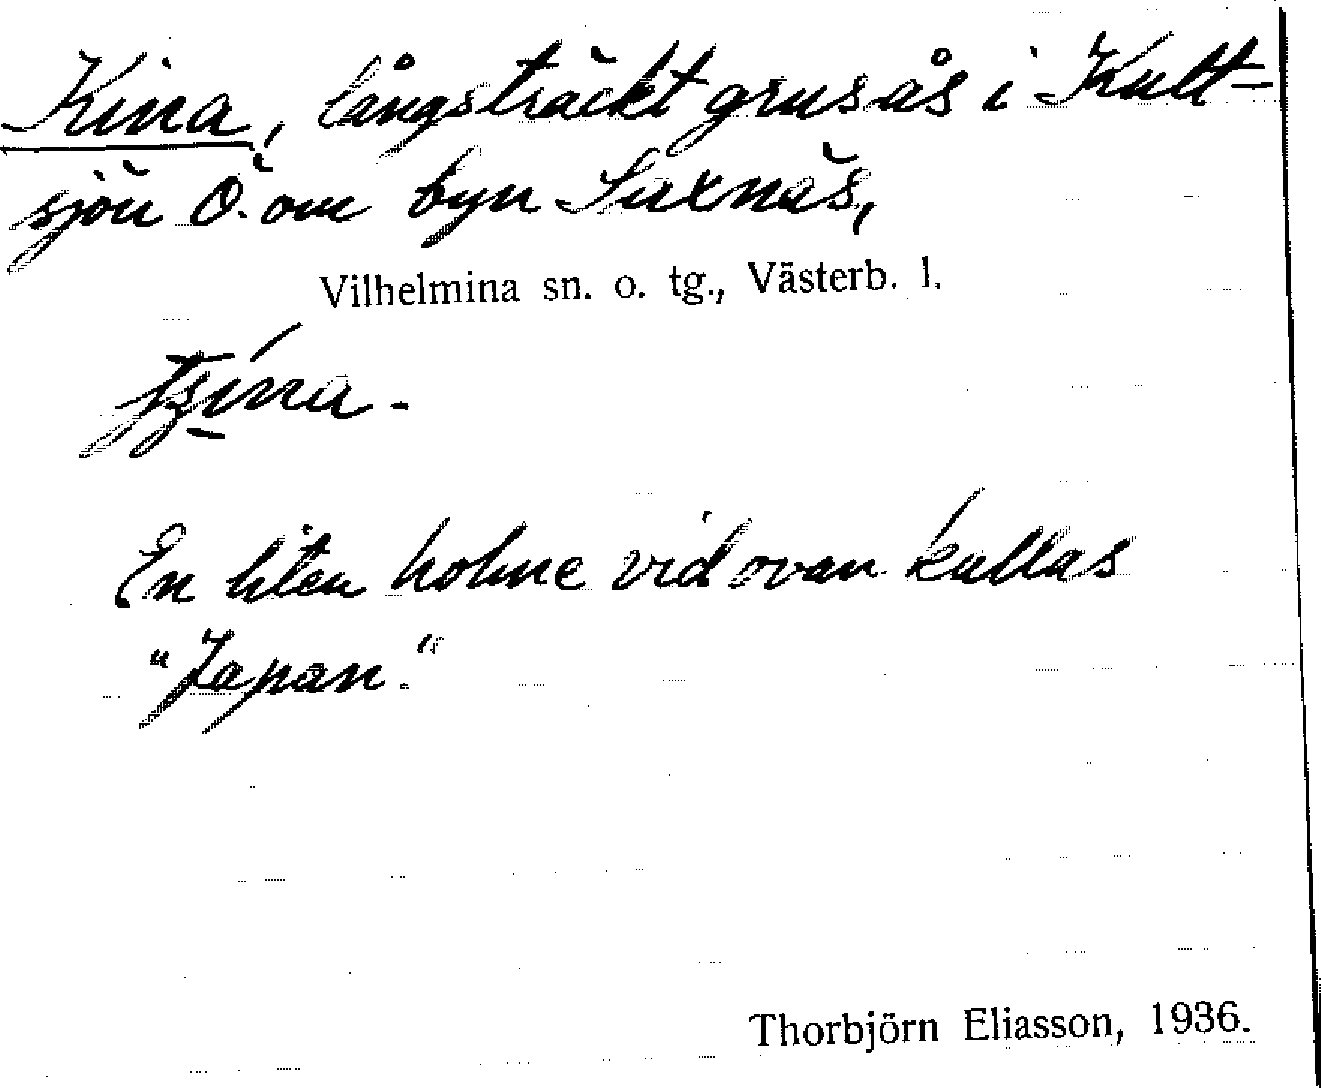 Kina, långsträckt grusås i Kult-
sjön Ö. om byn Saxnäs,
Vilhelmina sn. o. tg., Västerb. l.
En liten holme vid ovan kallas
"Japan."
Thorbjörn Eliasson, 1936.